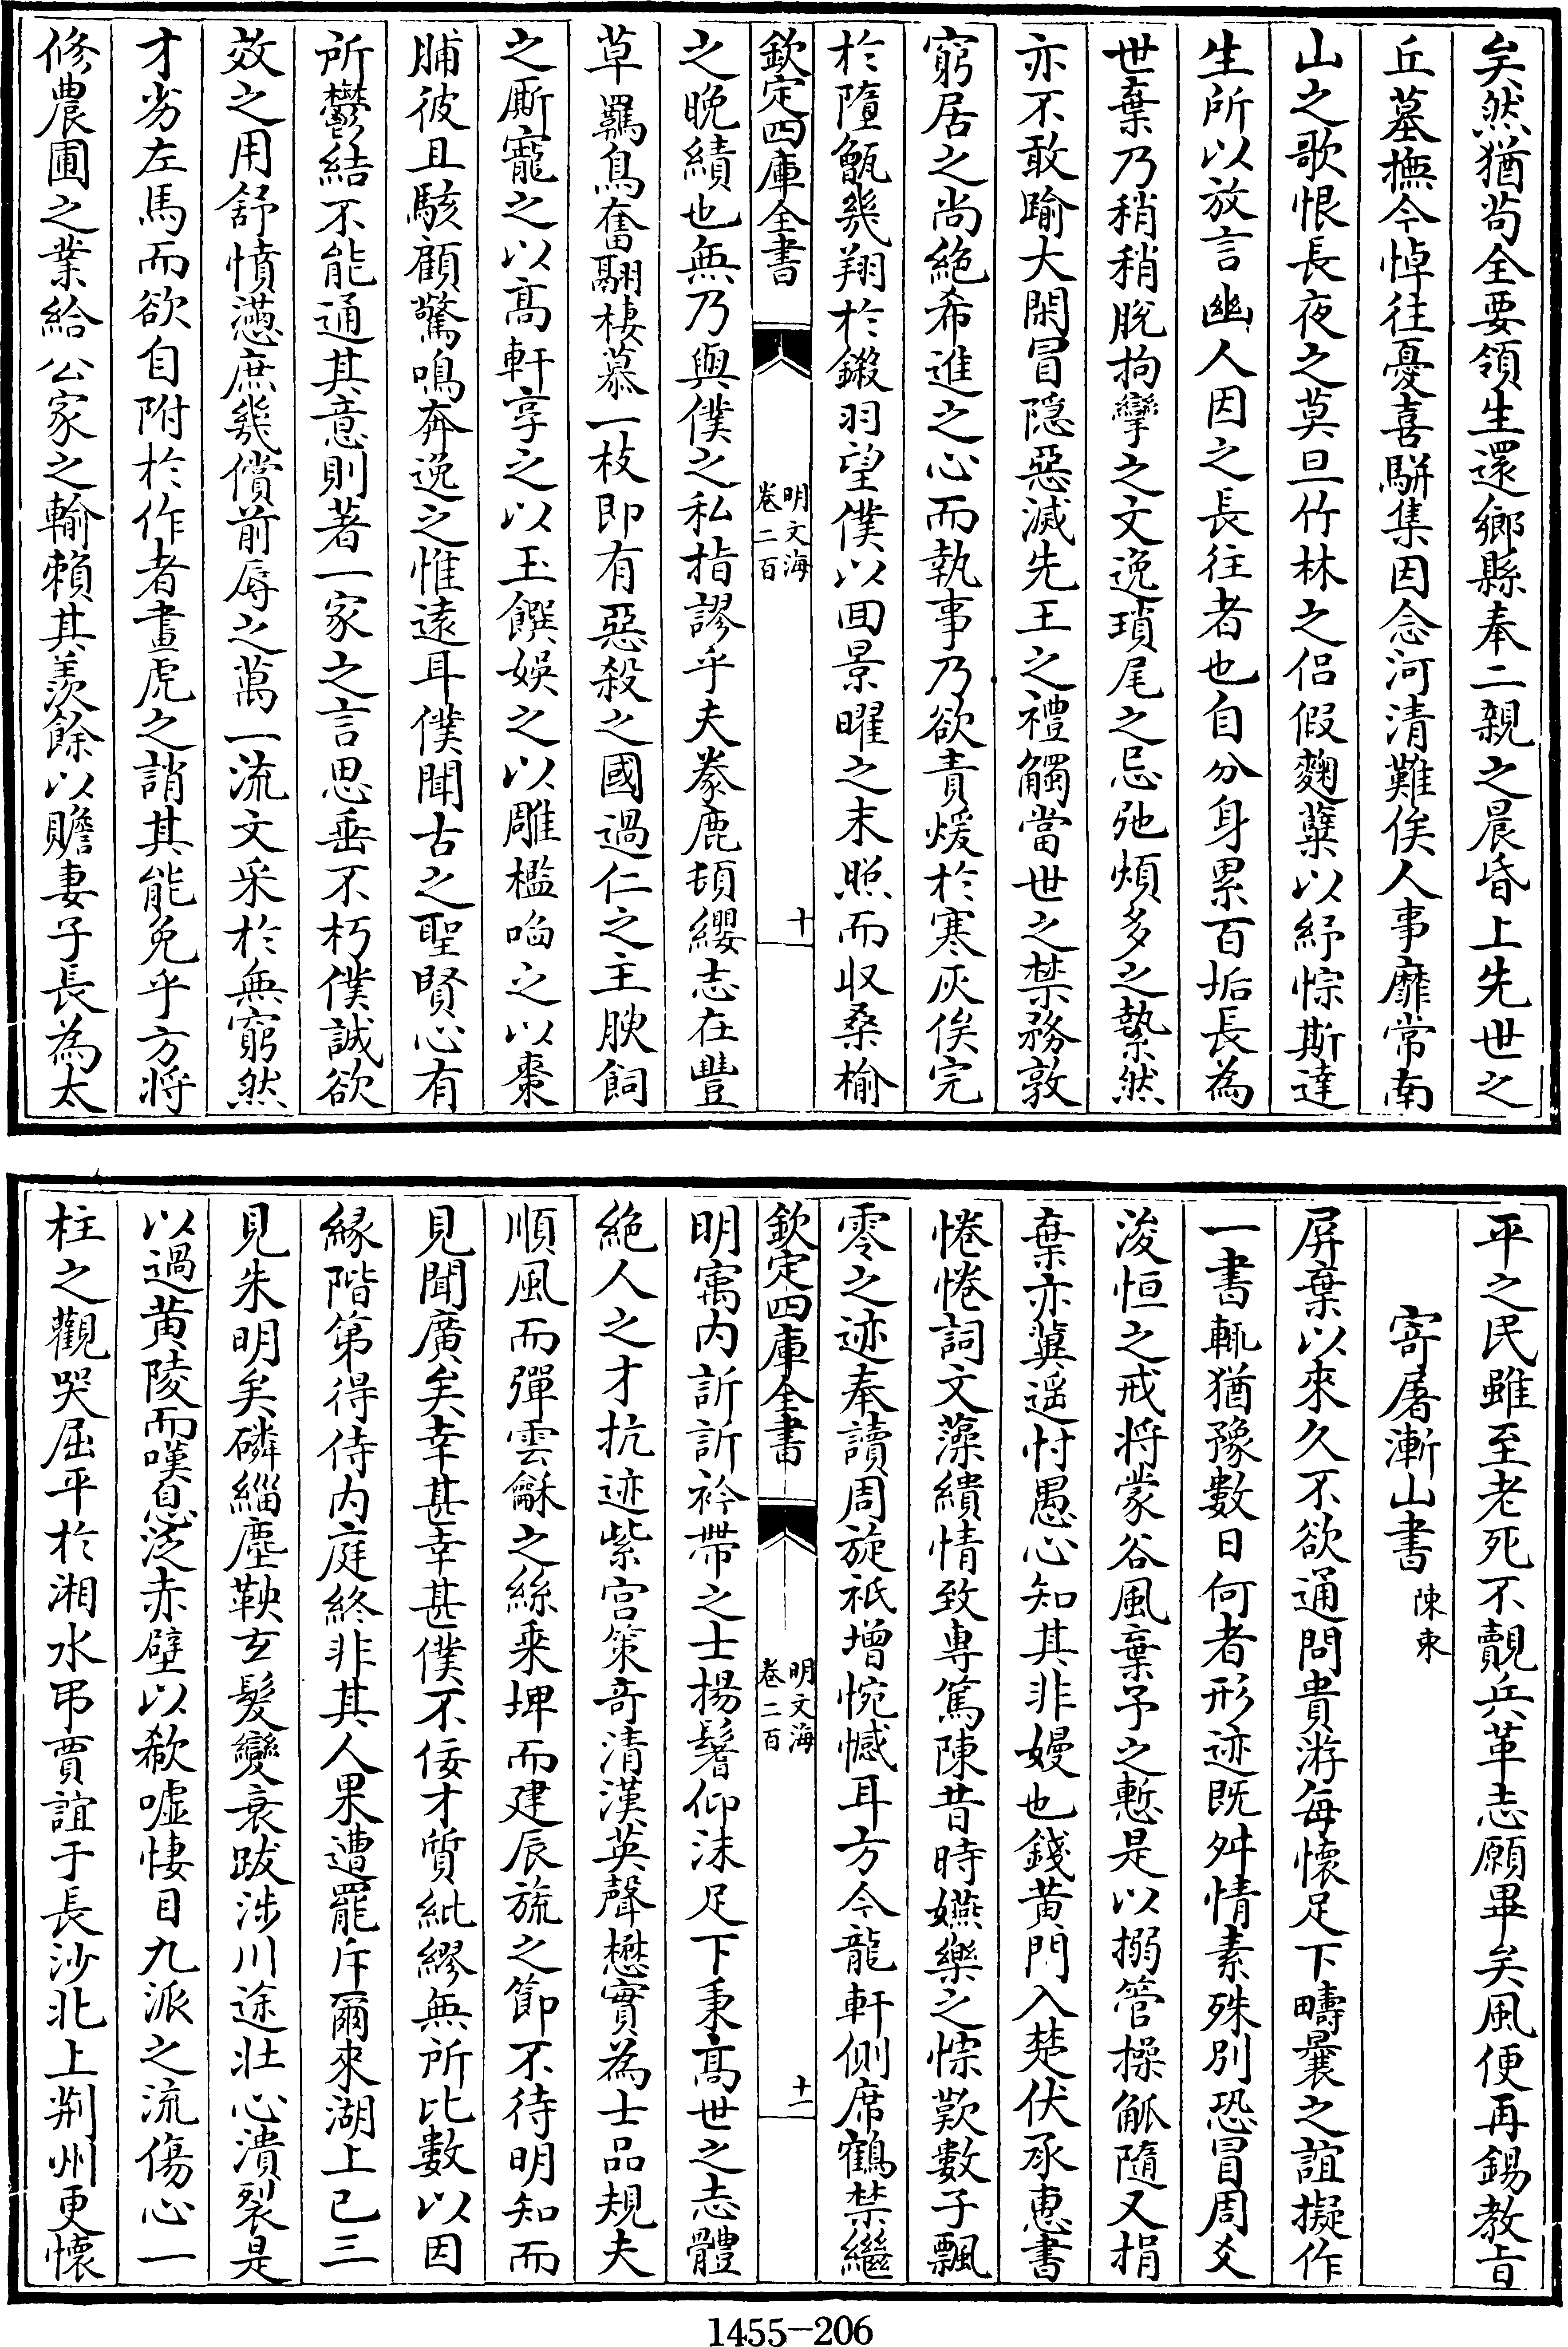 矣然猶苟全要領生還鄉縣奉二親之晨昏上先世之
丘墓撫今悼往憂喜駢集因念河清難俟人事靡常南
山之歌恨長夜之莫旦竹林之侶假麴糵以紓悰斯達
生所以放言幽人因之長往者也自分身累百垢長為
世棄乃稍稍脫拘攣之文逸瑣尾之忌弛煩多之縶然
亦不敢踰大閑冒隠惡滅先王之禮觸當世之禁務敦
窮居之尚絶希進之心而執事乃欲責煖於寒灰俟完
於墮甑㡬翔於鎩羽望僕以回景曜之末照而收桑榆
欽定四庫全書
明文海
卷二百
十
之晩績也無乃與僕之私指謬乎夫豢鹿頓纓志在豐
草羈鳥奮翮棲慕一枝即有惡殺之國過仁之主腴飼
之厮寵之以髙軒享之以玉饌娛之以雕檻啗之以棗
脯彼且駭顧驚鳴奔逸之惟遠耳僕聞古之聖賢心有
所鬱結不能通其意則著一家之言思垂不朽僕誠欲
效之用舒憤懣庶㡬償前辱之萬一流文采於無窮然
才劣左馬而欲自附於作者畫虎之誚其能免乎方将
修農圃之業給公家之輸賴其羨餘以贍妻子長為太
平之民雖至老死不覩兵革志願畢矣風便再錫教㫖
寄屠漸山書
陳束
屏棄以來久不欲通問貴游每懐足下疇曩之誼擬作
一書輒猶豫數日何者形迹既舛情素殊别恐冒周爻
浚恒之戒将蒙谷風棄予之慙是以搦管操觚隨又捐
棄亦冀遥忖愚心知其非嫚也錢黄門入楚伏承惠書
惓惓詞文藻繢情致専篤陳昔時嬿樂之悰歎數子飄
零之迹奉讀周旋祇增惋憾耳方今龍軒側席鶴禁繼
欽定四庫全書
明文海
卷二百
十一
明㝢内訢訢衿帶之士揚鬐仰沫足下秉髙世之志體
絶人之才抗迹紫宫策竒清漢英聲懋實為士品規夫
順風而彈雲龢之絲乘埤而建辰旒之節不待明知而
見聞廣矣幸甚幸甚僕不佞才質紕繆無所比數以因
縁階第得侍内庭終非其人果遭罷斥爾來湖上已三
見朱明矣磷緇塵鞅玄髮變衰跋涉川途壮心潰裂是
以過黄陵而嘆息泛赤壁以欷嘘悽目九派之流傷心一
柱之觀哭屈平於湘水弔賈誼于長沙北上荆州更懐
1455-206